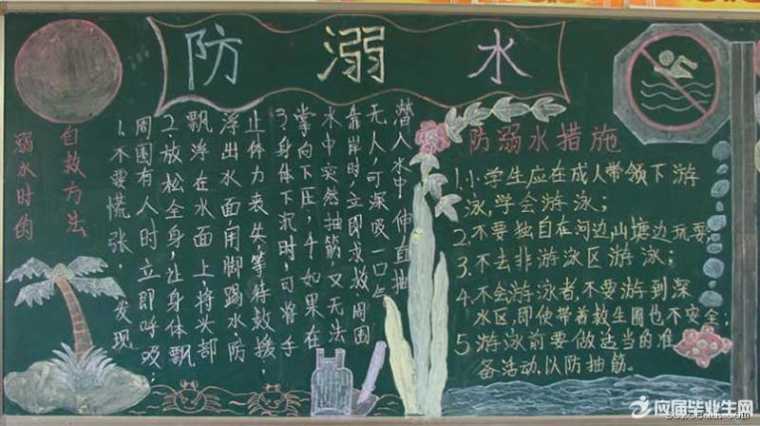 防溺水
溺水时的
自救方法
1.不要慌张,发现
周围有人时立即呼救,
2.放松全身,让身体飘
飘浮在水面上,将头部
浮出水面用脚踢水防
止体力丧失,等待救援,
3.身体下沉时,可将手
掌向下压,4.如果在
水中突然抽筋,又无法
靠岸时,立即求救,周围
无人,可深吸一口气
潜入水中伸直抽
防溺水措施
1.小学生应在成人带领下游
泳,学会游泳;
2.不要独自在河边,山塘边玩耍;
3.不去非游泳区游泳;
4.不会游泳者,不要游到深
水区,即使带着救生圈也不安全;
5.游泳前要做适当的准
备活动,以防抽筋。
应届毕业生网